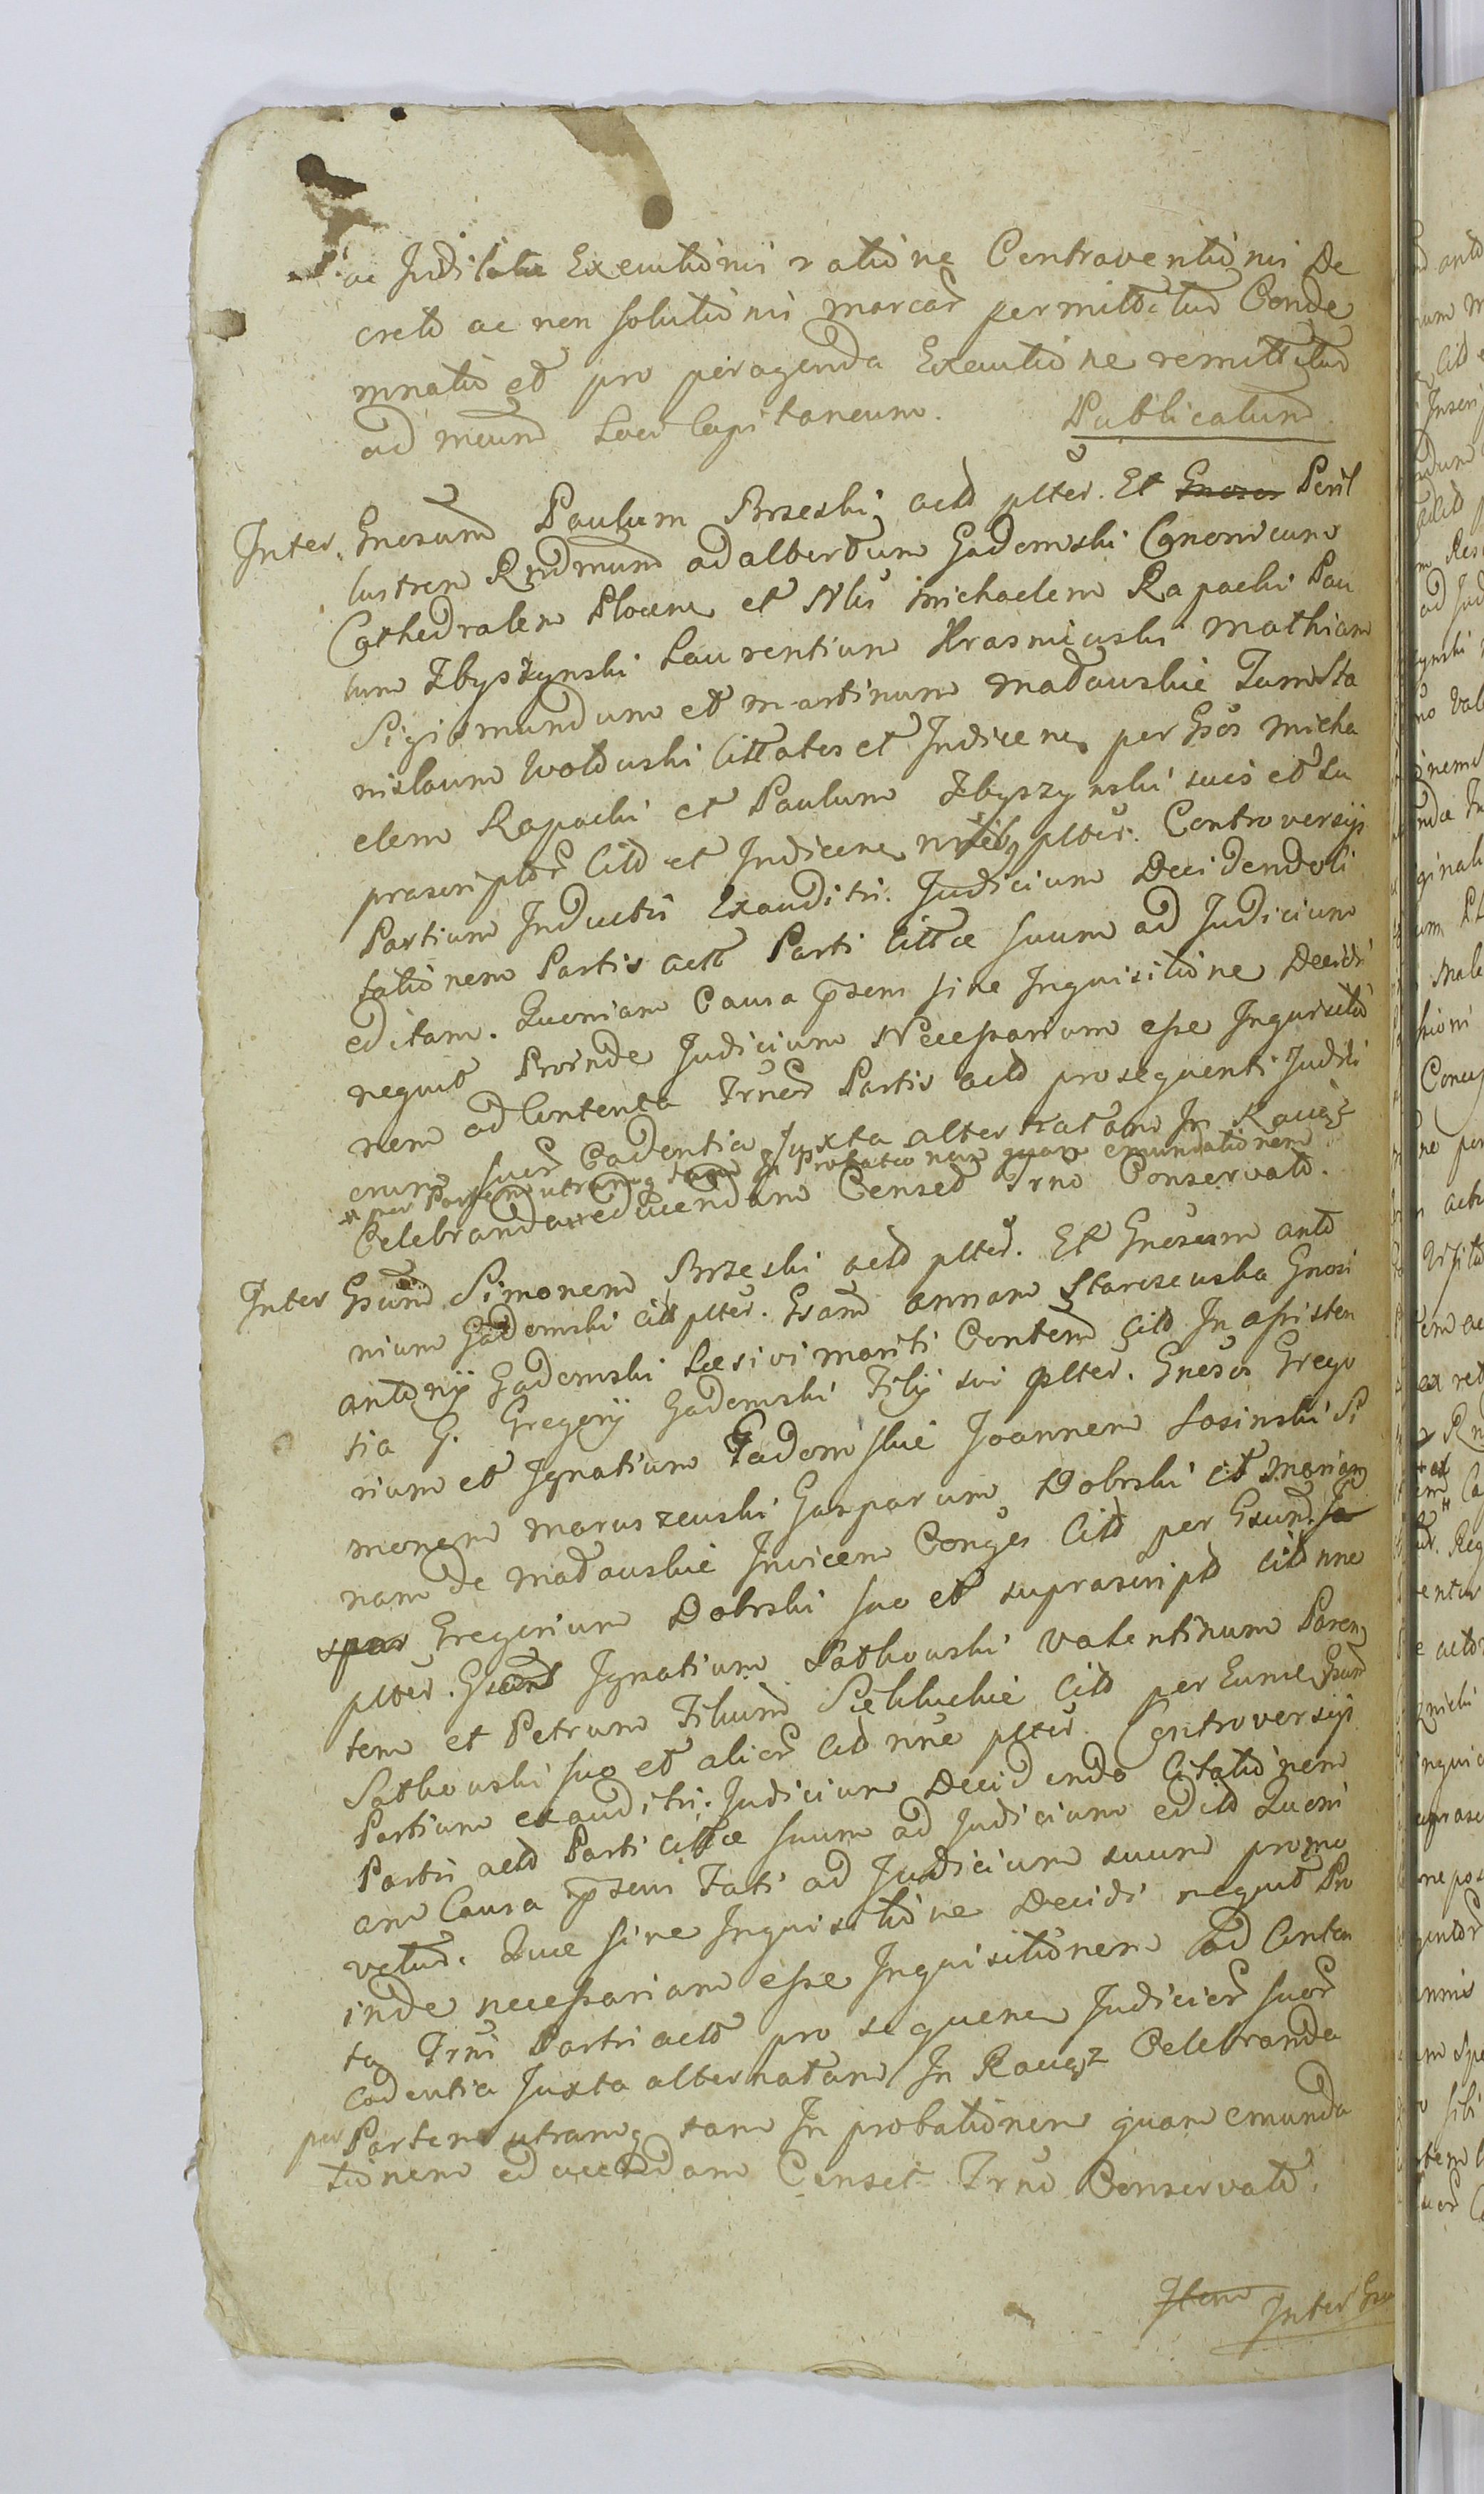 ac Judilatæ Executionis ratione Contraventionis De
creto ac non solutionis marcar permittitur Conde
mnatio et pro peragenda Executione remittitur
ad meum Loci Capitaneum. Publicatum.
Inter Gnosum Paulum Brzeski acto plter. Et Gnosos Peril
lustrem Rndmum adalbertum Gadomski Canonicum
Cathedralem Plocen et Nbs michaelem Rapacki Pau
lum Zbyszynski Laurentium Krasnieuski mathiam
Sigismundum et martinum madauskie Tum Sta
nislaum Woiduski Cittatos et Indicenes per Gsos micha
elem Rapacki et Paulum Zbyszynski suis et su
prascriptor Citto et Indicene nnibq plter. Controversys
Partium Inductis Exauditis. Judicium Decidendo Ci
tationem Partis acto Parti Cittæ suum ad Judicium
editam. Quoniam Causa psens sine Inquisitione Decidi
nequit Proinde Judicium Necessarium esse Inquisitio
nem ad Contenta Trner Partis acto prosequenti Judici
orum suor Cadentia Juxta alternatam In Raciąz
* per Partem utramq tam In Probationem quam emundationem
Celebranda educendam Censet Trno Conservato.
Inter Gsum Simonem Brzeski acto plter. Et Gnosum anto
nium Gadomski citt plter. Gsam annam Starczeuska Gnosi
antonij Gadomski Læsivi mariti Contem Citt In assisten
tia G. Gregorij Gadomski Filij sui plter. Gnosos Grego
rium et Ignatium Gadomskie Joannem Losinski Si
monem maruszeuski Gasparum Dobrski et marian
nam de madauskie Invicem Conges Citt per Gsum Ja
spar Gregorium Dobrski suo et suprascripto citt nne
plter. Gsum Ignatium Satkouski Valentinum Paren
tem et Petrum Filium Siekluckie Citt per Eume Gsum
Satkouski suo et alior Citt nne plter. Controversys
Partium exauditis. Judicium Decidendo Citationem
Partis acto Parti cittæ suum ad Judicium edito Quoni
am Causa psens Fati ad Judicium suum promo
vetur. Quæ sine Inquisitione Decidi nequit Pro
inde necessariam esse Inquisitionem ad Conten
ta Trni Partis acto pro sequene Judicior suor
cadentia Juxta alternatam In Raciąz Celebranda
per Partem utramq tam In probationem quam emunda
tionem educendam Censet Trno Conservato.
Item Inter Gsu